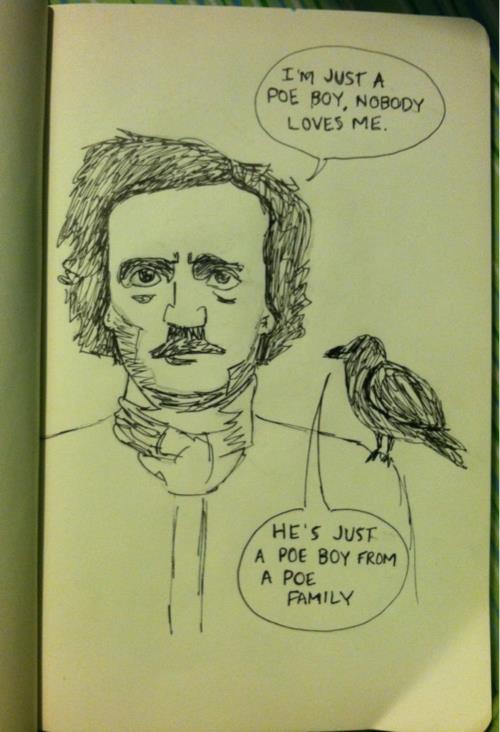 I'M JUST A
POE BOY, NOBODY
LOVES ME.
HE'S JUST
A POE BOY FROM
A POE
FAMILY